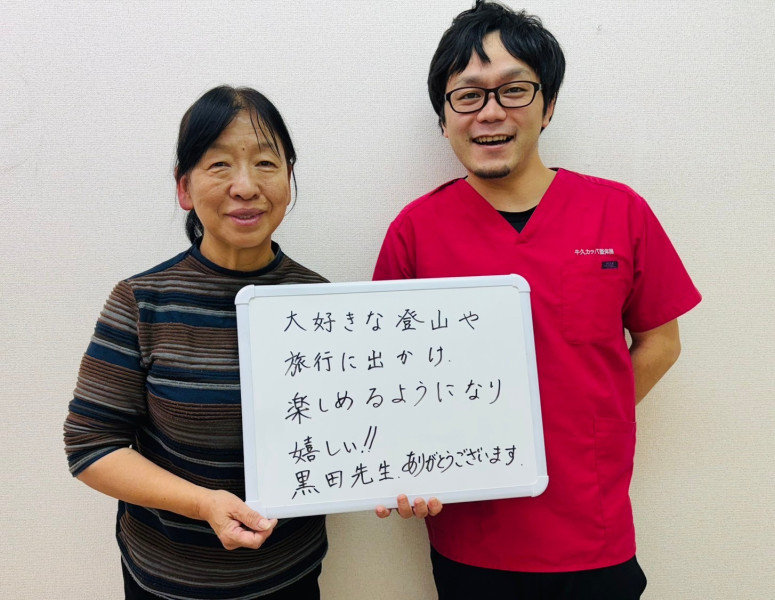 大好きな登山や
旅行に出かけ.
楽しめるようになり
嬉しい!!
黒田先生.ありがとうございます.
牛久カッパ整体院